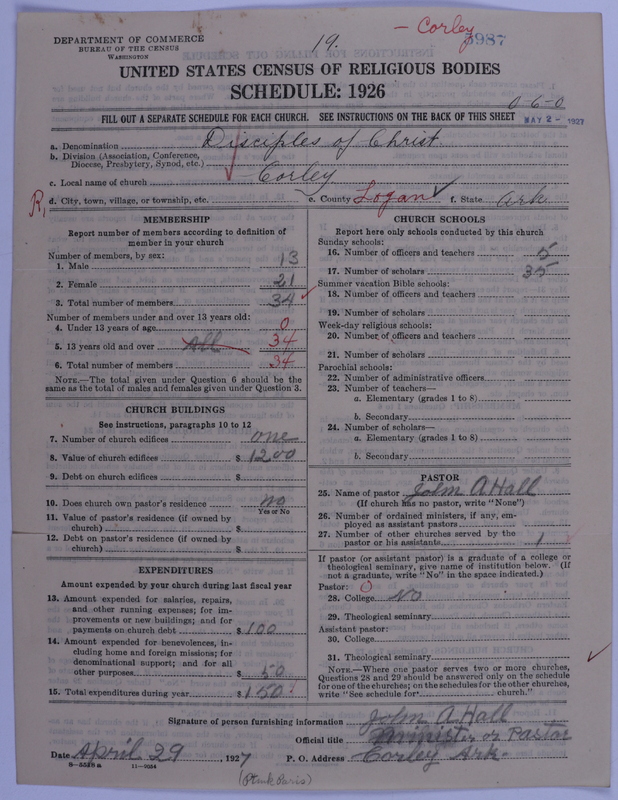 — Corley
DEPARTMENT OF COMMERCE
BUREAU OF THE CENSUS
WASHINGTON
19.
3987
UNITED STATES CENSUS OF RELIGIOUS BODIES
SCHEDULE: 1926
0-6-0
FILL OUT A SEPARATE SCHEDULE FOR EACH CHURCH. SEE INSTRUCTIONS ON THE BACK OF THIS SHEET
MAY 2 - 1927
a. Denomination Disciples of Christ.
b. Division (Association, Conference,
Diocese, Presbytery, Synod, etc.)
c. Local name of church Corley
R, d. City, town, village, or township, etc. e. County Logan f. State Ark
MEMBERSHIP
Report number of members according to definition of
member in your church
Number of members, by sex:
1. Male 13
2. Female 21
3. Total number of members 34
Number of members under and over 13 years old:
4. Under 13 years of age 0
5. 13 years old and over All 34
6. Total number of members 34
NOTE.—The total given under Question 6 should be the
same as the total of males and females given under Question 3.
CHURCH BUILDINGS
See instructions, paragraphs 10 to 12
7. Number of church edifices one
8. Value of church edifices $ 1200
9. Debt on church edifices $
10. Does church own pastor's residence no
Yes or No
11. Value of pastor's residence (if owned by
church) $
12. Debt on pastor's residence (if owned by
church) $
EXPENDITURES
Amount expended by your church during last fiscal year
13. Amount expended for salaries, repairs,
and other running expenses; for im-
provements or new buildings; and for
payments on church debt $ 100
14. Amount expended for benevolences, in-
cluding home and foreign missions; for
denominational support; and for all
other purposes $ 50
15. Total expenditures during year $ 150
CHURCH SCHOOLS
Report here only schools conducted by this church
Sunday schools:
16. Number of officers and teachers 5
17. Number of scholars 35
Summer vacation Bible schools:
18. Number of officers and teachers
19. Number of scholars
Week-day religious schools:
20. Number of officers and teachers
21. Number of scholars
Parochial schools:
22. Number of administrative officers
23. Number of teachers—
a. Elementary (grades 1 to 8)
b. Secondary
24. Number of scholars—
a. Elementary (grades 1 to 8)
b. Secondary
PASTOR
25. Name of pastor John A Hall
(If church has no pastor, write "None")
26. Number of ordained ministers, if any, em-
ployed as assistant pastors
27. Number of other churches served by the
pastor or his assistants 1
If pastor (or assistant pastor) is a graduate of a college or
theological seminary, give name of institution below. (If
not a graduate, write "No" in the space indicated.)
Pastor: 0
28. College No
29. Theological seminary
Assistant pastor:
30. College
31. Theological seminary
NOTE.—Where one pastor serves two or more churches,
Questions 28 and 29 should be answered only on the schedule
for one of the churches; on the schedules for the other churches,
write "See schedule for church."
Signature of person furnishing information John A Hall
Official title Minister or Pastor
Date April 29, 1927 P. O. Address Corley Ark.
11—9034